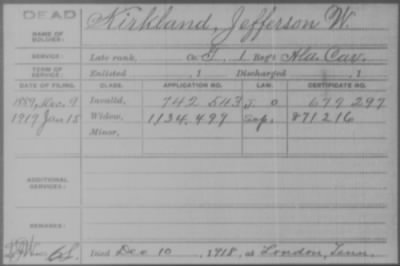 DEAD
NAME OF SOLDIER: Kirkland, Jefferson W.
SERVICE: Late rank, Co. I, 1 Reg't Ala. Cav.
TERM OF SERVICE: Enlisted , 1 Discharged , 1
DATE OF FILING. CLASS. APPLICATION NO. LAW. CERTIFICATE NO.
1889, Nov. 9 Invalid, 742 543 J. O 679 297
1919 Jan 15 Widow, 1134,499 871216
Minor,
ADDITIONAL SERVICES:
REMARKS:
Died Dec 10, 1918, at London, Tenn.